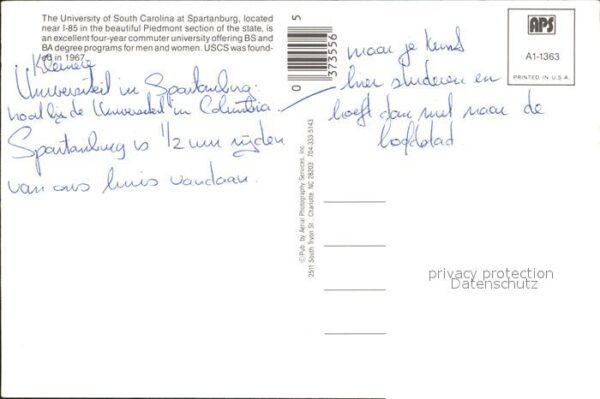 The University of South Carolina at Spartanburg, located
near I-85 in the beautiful Piedmont section of the state, is
an excellent four-year commuter university offering BS and
BA degree programs for men and women. USCS was found-
ed in 1967.
Kleinere
Universiteit in Spartanburg:
hoort bij de Universiteit in Columbia
Spartanburg is 1/2 uur rijden
van ons huis vandaan.
maar je kunt
hier studeren en
hoeft dan niet naar de
hoofdstad
5
0 373556
©Pub. by Aerial Photography Services, Inc.
2511 South Tryon St., Charlotte, NC 28203 704-333-5143
APS
A1-1363
PRINTED IN U.S.A.
privacy protection
Datenschutz